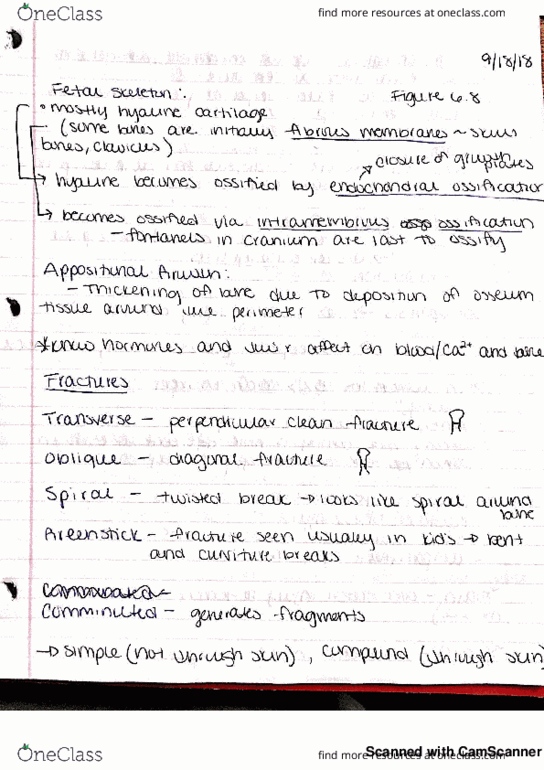 OneClass
find more resources at oneclass.com
9/18/18
Fetal Skeleton:
Figure 6.8
• mostly hyaline cartilage
(some bones are initially fibrous membranes ~ skull
bones, clavicles)
→ closure of growth plates
→ hyaline becomes ossified by endochondral ossification
→ becomes ossified via intramembrous ossification
- fontanels in cranium are last to ossify
Appositional Growth:
- Thickening of bone due to deposition of osseum
tissue around the perimeter
*know hormones and their affect on blood/Ca2+ and bone
Fractures
Transverse - perpendicular clean fracture
Oblique - diagonal fracture
Spiral - twisted break → looks like spiral around
bone
Greenstick - fracture seen usually in kids → bent
and curviture breaks
Comminuted - generates fragments
→ simple (not through skin), compound (through skin)
OneClass
find more resources at oneclass.com
Scanned with CamScanner